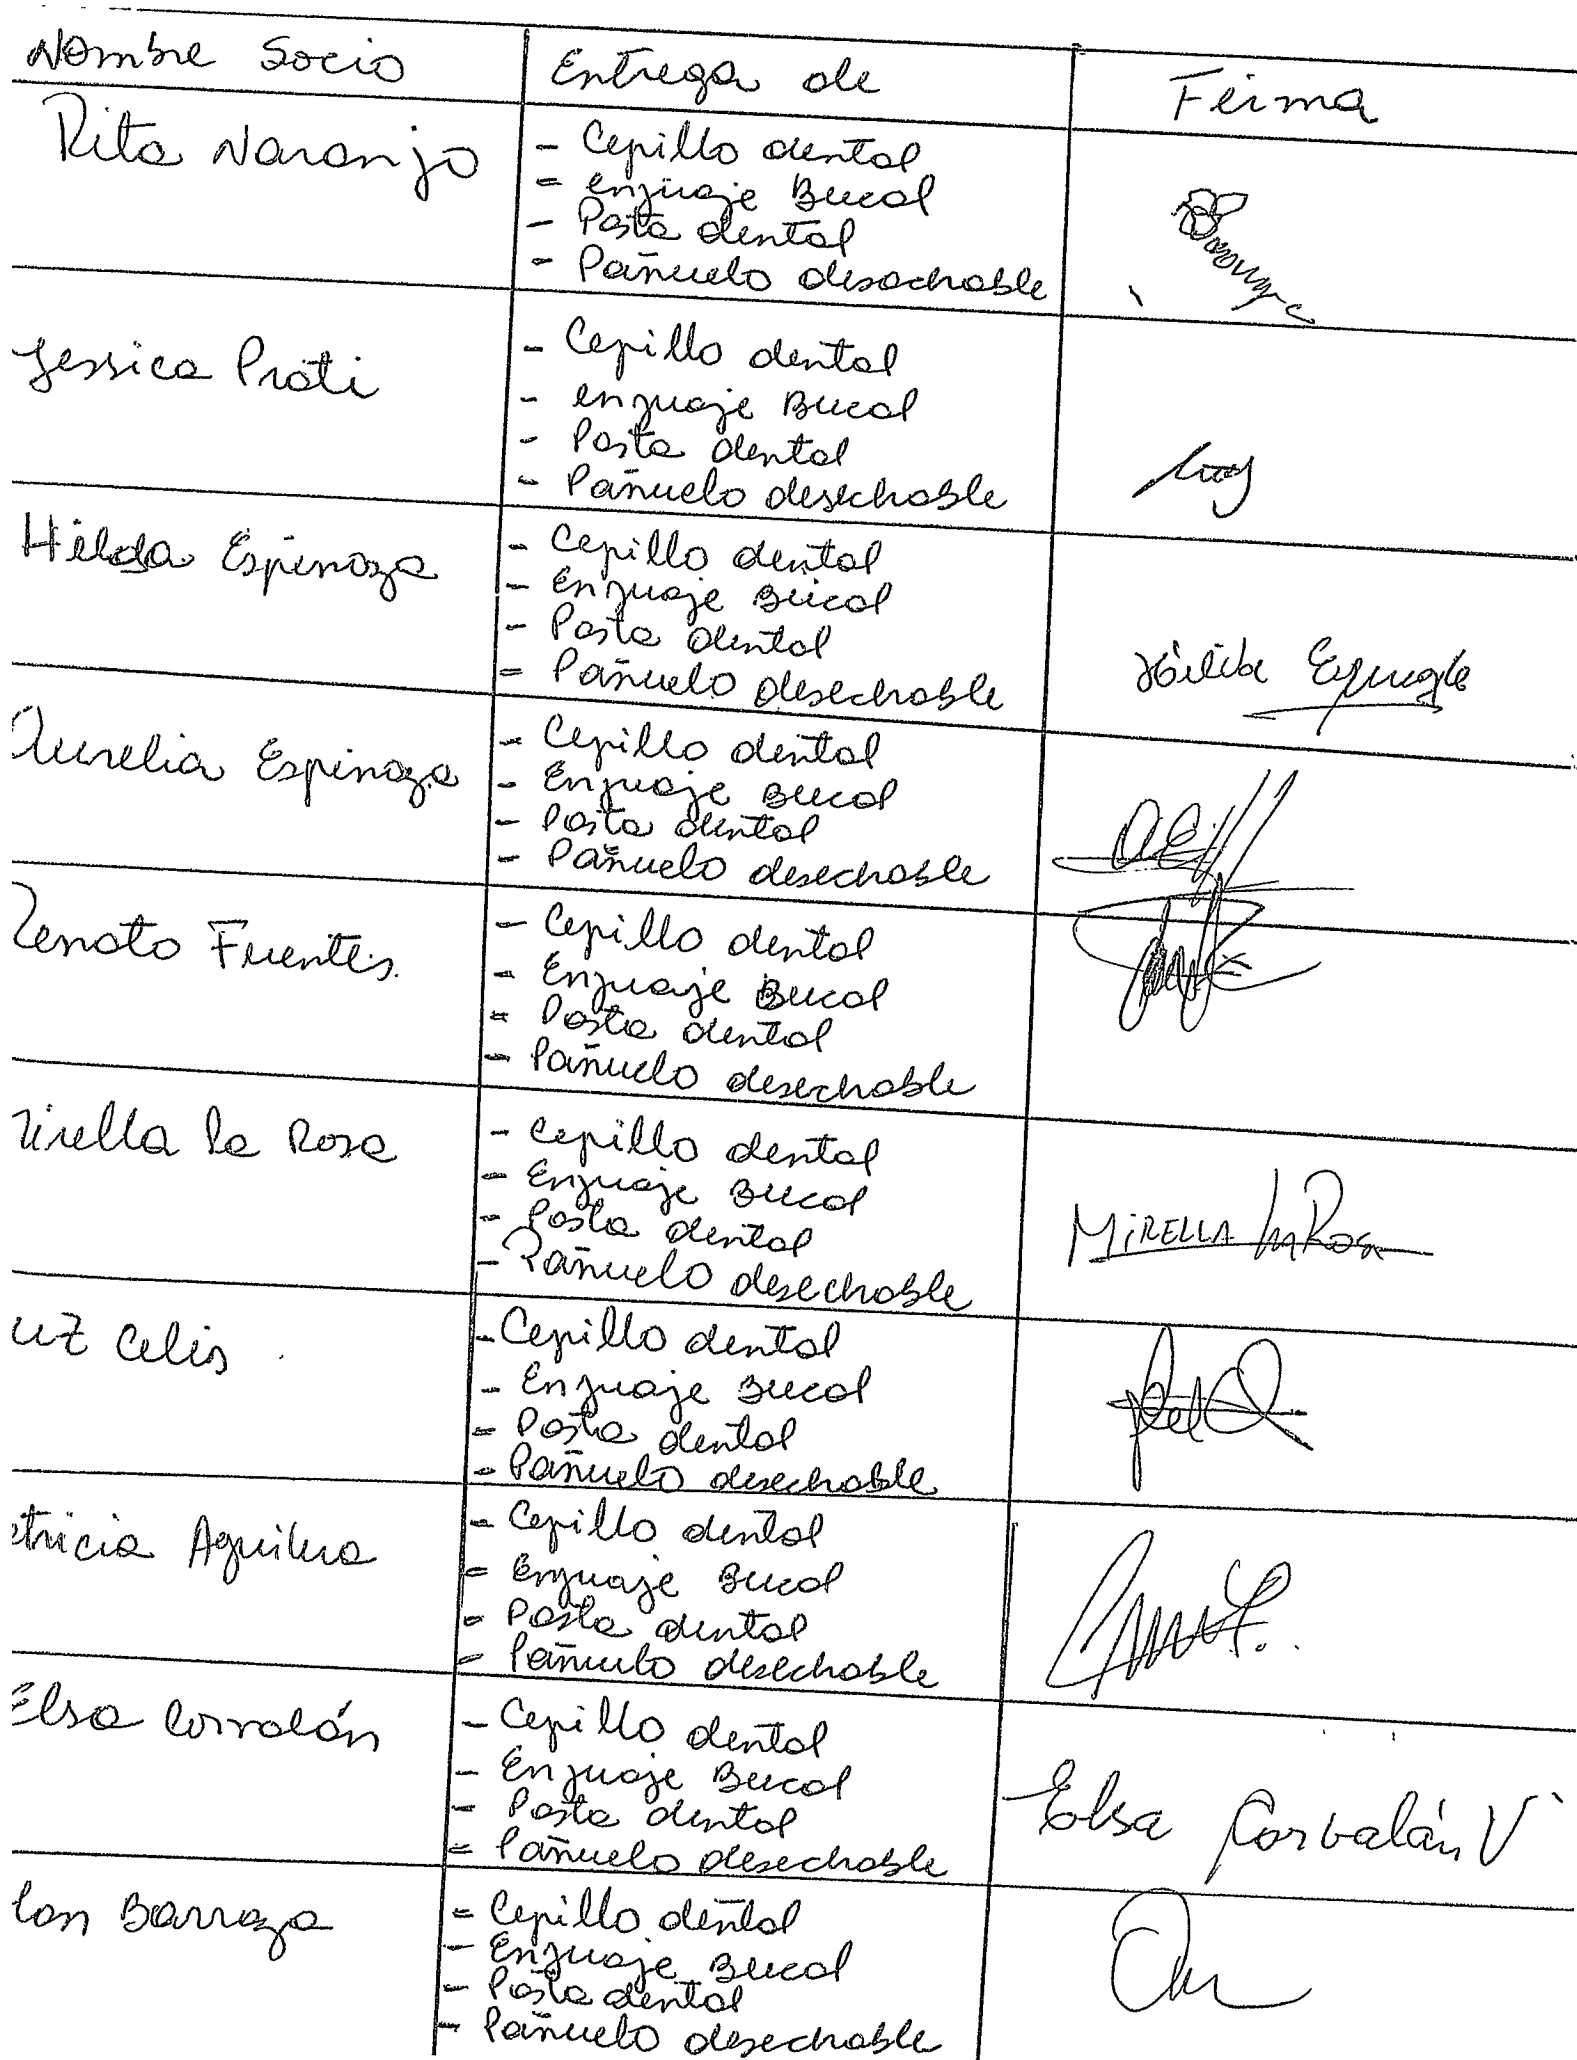 Nombre Socio Entrega de Firma
Rita Naranjo
- Cepillo dental
- enjuaje Bucal
- Pasta dental
- Pañuelo desachable
Jessica Prati
- Cepillo dental
- enjuaje Bucal
- Pasta dental
- Pañuelo desechable
Hilda Espinoza
- Cepillo dental
- Enjuaje Bucal
- Pasta dental
- Pañuelo desechable
Hilda
Aurelia Espinoza
- Cepillo dental
- Enjuaje Bucal
- Pasta dental
- Pañuelo desechable
Renato Fuentes.
- Cepillo dental
- Enjuaje Bucal
- Pasta dental
- Pañuelo desechable
irella La Rosa
- Cepillo dental
- Enjuaje Bucal
- Pasta dental
- Pañuelo desechable
MiRELLA La Rosa
uz Celis
- Cepillo dental
- Enjuaje Bucal
- Pasta dental
- Pañuelo desechable
tricia Aguilera
- Cepillo dental
- Enjuaje Bucal
- Pasta dental
- Pañuelo desechable
Elsa Corvalán
- Cepillo dental
- Enjuaje Bucal
- Pasta dental
- Pañuelo desechable
Elsa Corvalán V
lan Barraza
- Cepillo dental
- Enjuaje Bucal
- Pasta dental
- Pañuelo desechable